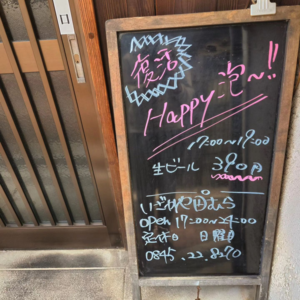 復活
Happy 泡〜!!
17:00〜19:00
生ビール 390円
open 17:00〜24:00
定休日 日曜日
0845.22.8270